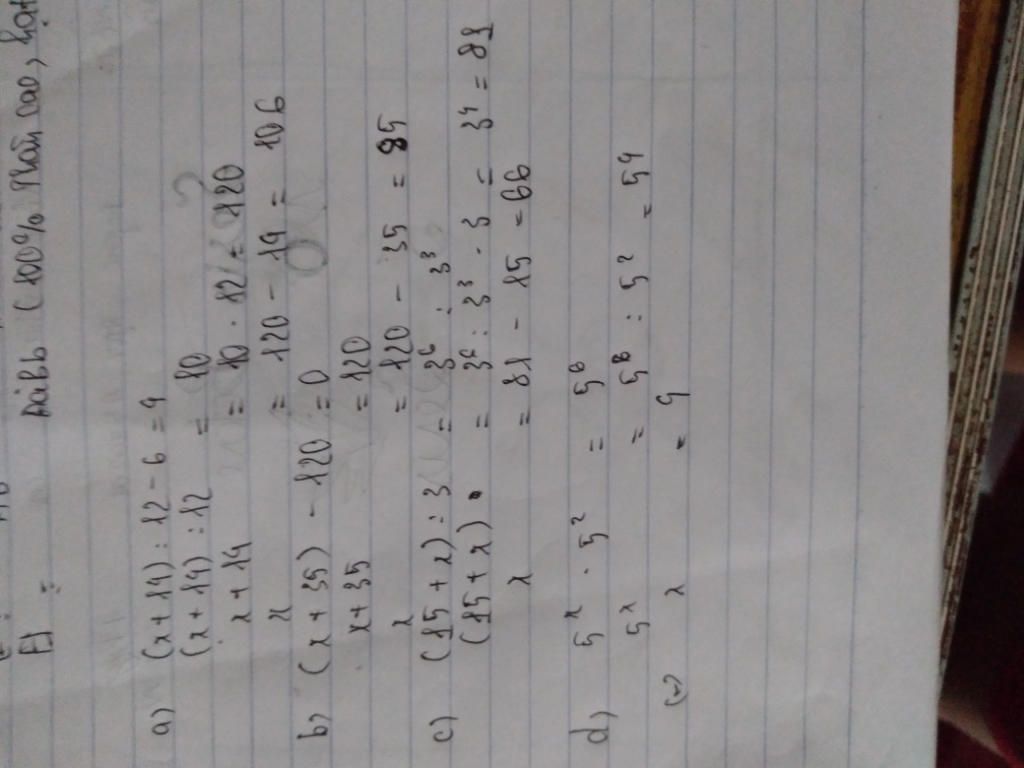 F1 : AaBb (100% Thân cao, hạt
a) (x+14) : 12 - 6 = 4
(x+14) : 12 = 10
x+14 = 10 . 12 = 120
x = 120 - 14 = 106
b) (x+35) - 120 = 0
x+35 = 120
x = 120 - 35 = 85
c) (15+x) : 3 = 3⁶ : 3³
(15+x) = 3⁶ : 3³ . 3 = 3⁴ = 81
x = 81 - 15 = 66
d) 5ˣ . 5² = 5⁶
5ˣ = 5⁶ : 5² = 5⁴
(=) x = 4